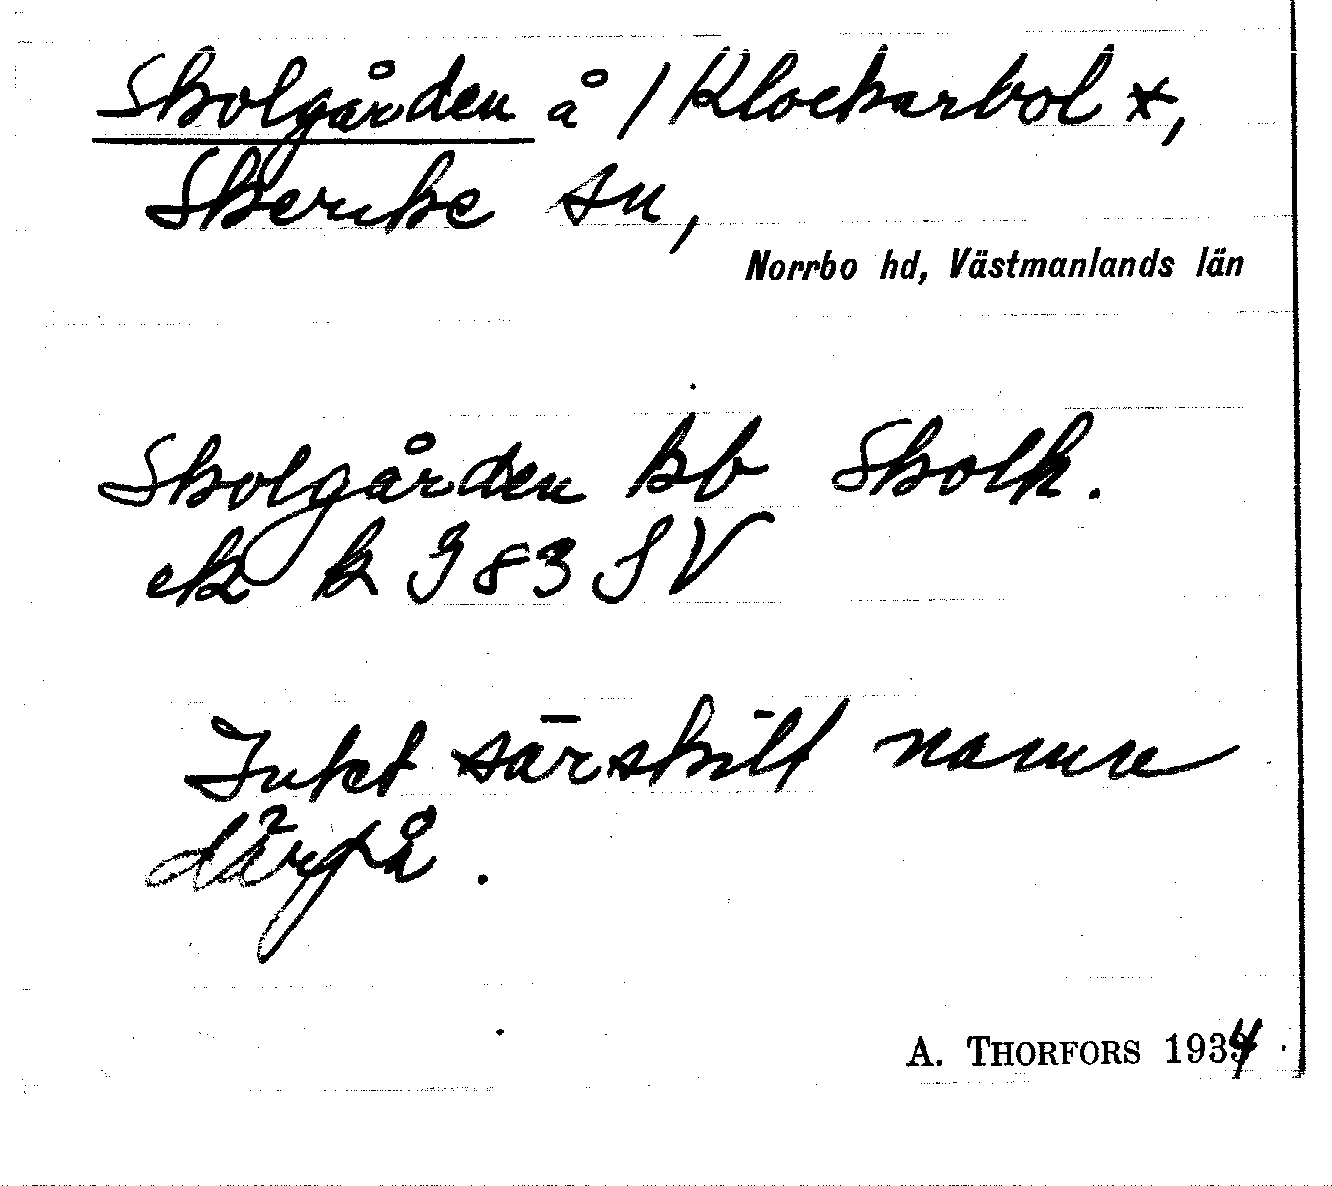 Skolgården å / Klockarbol x,
Skerike sn,
Norrbo hd, Västmanlands län
Skolgården bb Skolh.
ek k J 83 SV
Intet särskilt namn
därpå.
A. THORFORS 1934